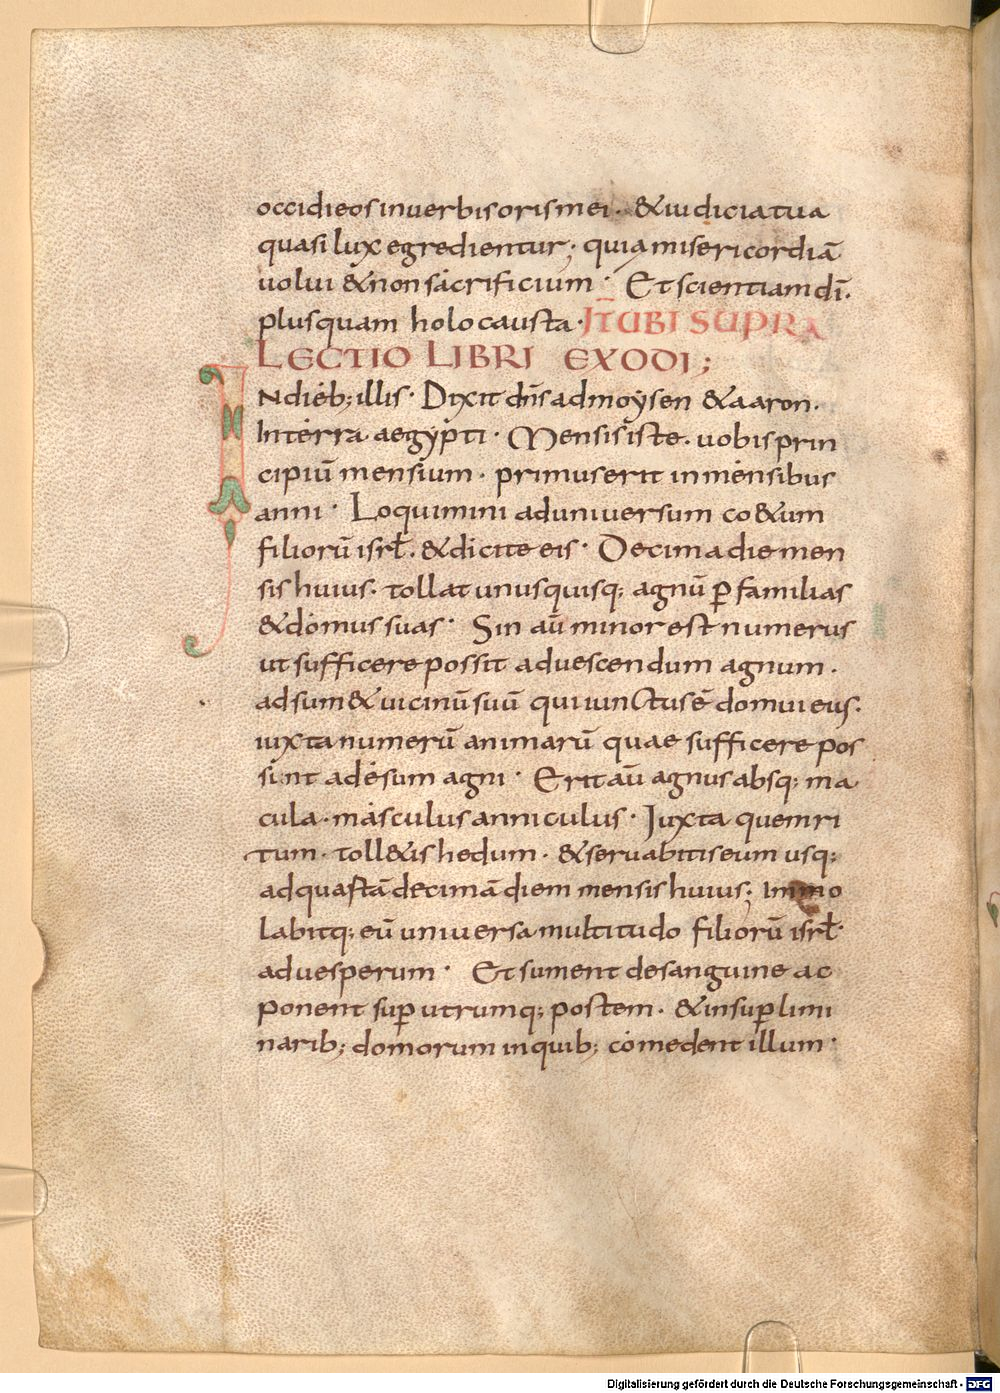 occidi eos in uerbis oris mei · & iudicia tua
quasi lux egredientur ; quia misericordiā
uolui & non sacrificium · Et scientiam dī .
plus quam holocausta · IT̄ UBI SUPRA
LECTIO LIBRI EXODI ;
INdieb; illis · Dixit dn̄s ad moysen & aaron .
In terra aegypti · Mensis iste . uobis prin
cipiū mensium · primus erit in mensibus
anni · Loquimini ad uniuersum co&um
filiorū isrł . & dicite eis · Decima die men
sis huius . tollat unusquisq; agnū ꝑ familias
& domus suas · Sin aū minor est numerus
ut sufficere possit ad uescendum agnum .
adsum& uicinū suū qui iunctus ē domui eius .
iuxta numerū animarū quae sufficere pos
sunt ad esum agni · Erit aū agnus absq; ma
cula . masculus anniculus · Juxta quem ri
tum . toll&is hedum . & seruabitis eum usq;
ad quartā decimā diem mensis huius ; Immo
labitq; eū uniuersa multitudo filiorū isrł .
ad uesperum · Et sument de sanguine ac
ponent suꝑ utrumq; postem . & in suꝑ limi
narib; domorum in quib; comedent illum ·
Digitalisierung gefördert durch die Deutsche Forschungsgemeinschaft - DFG